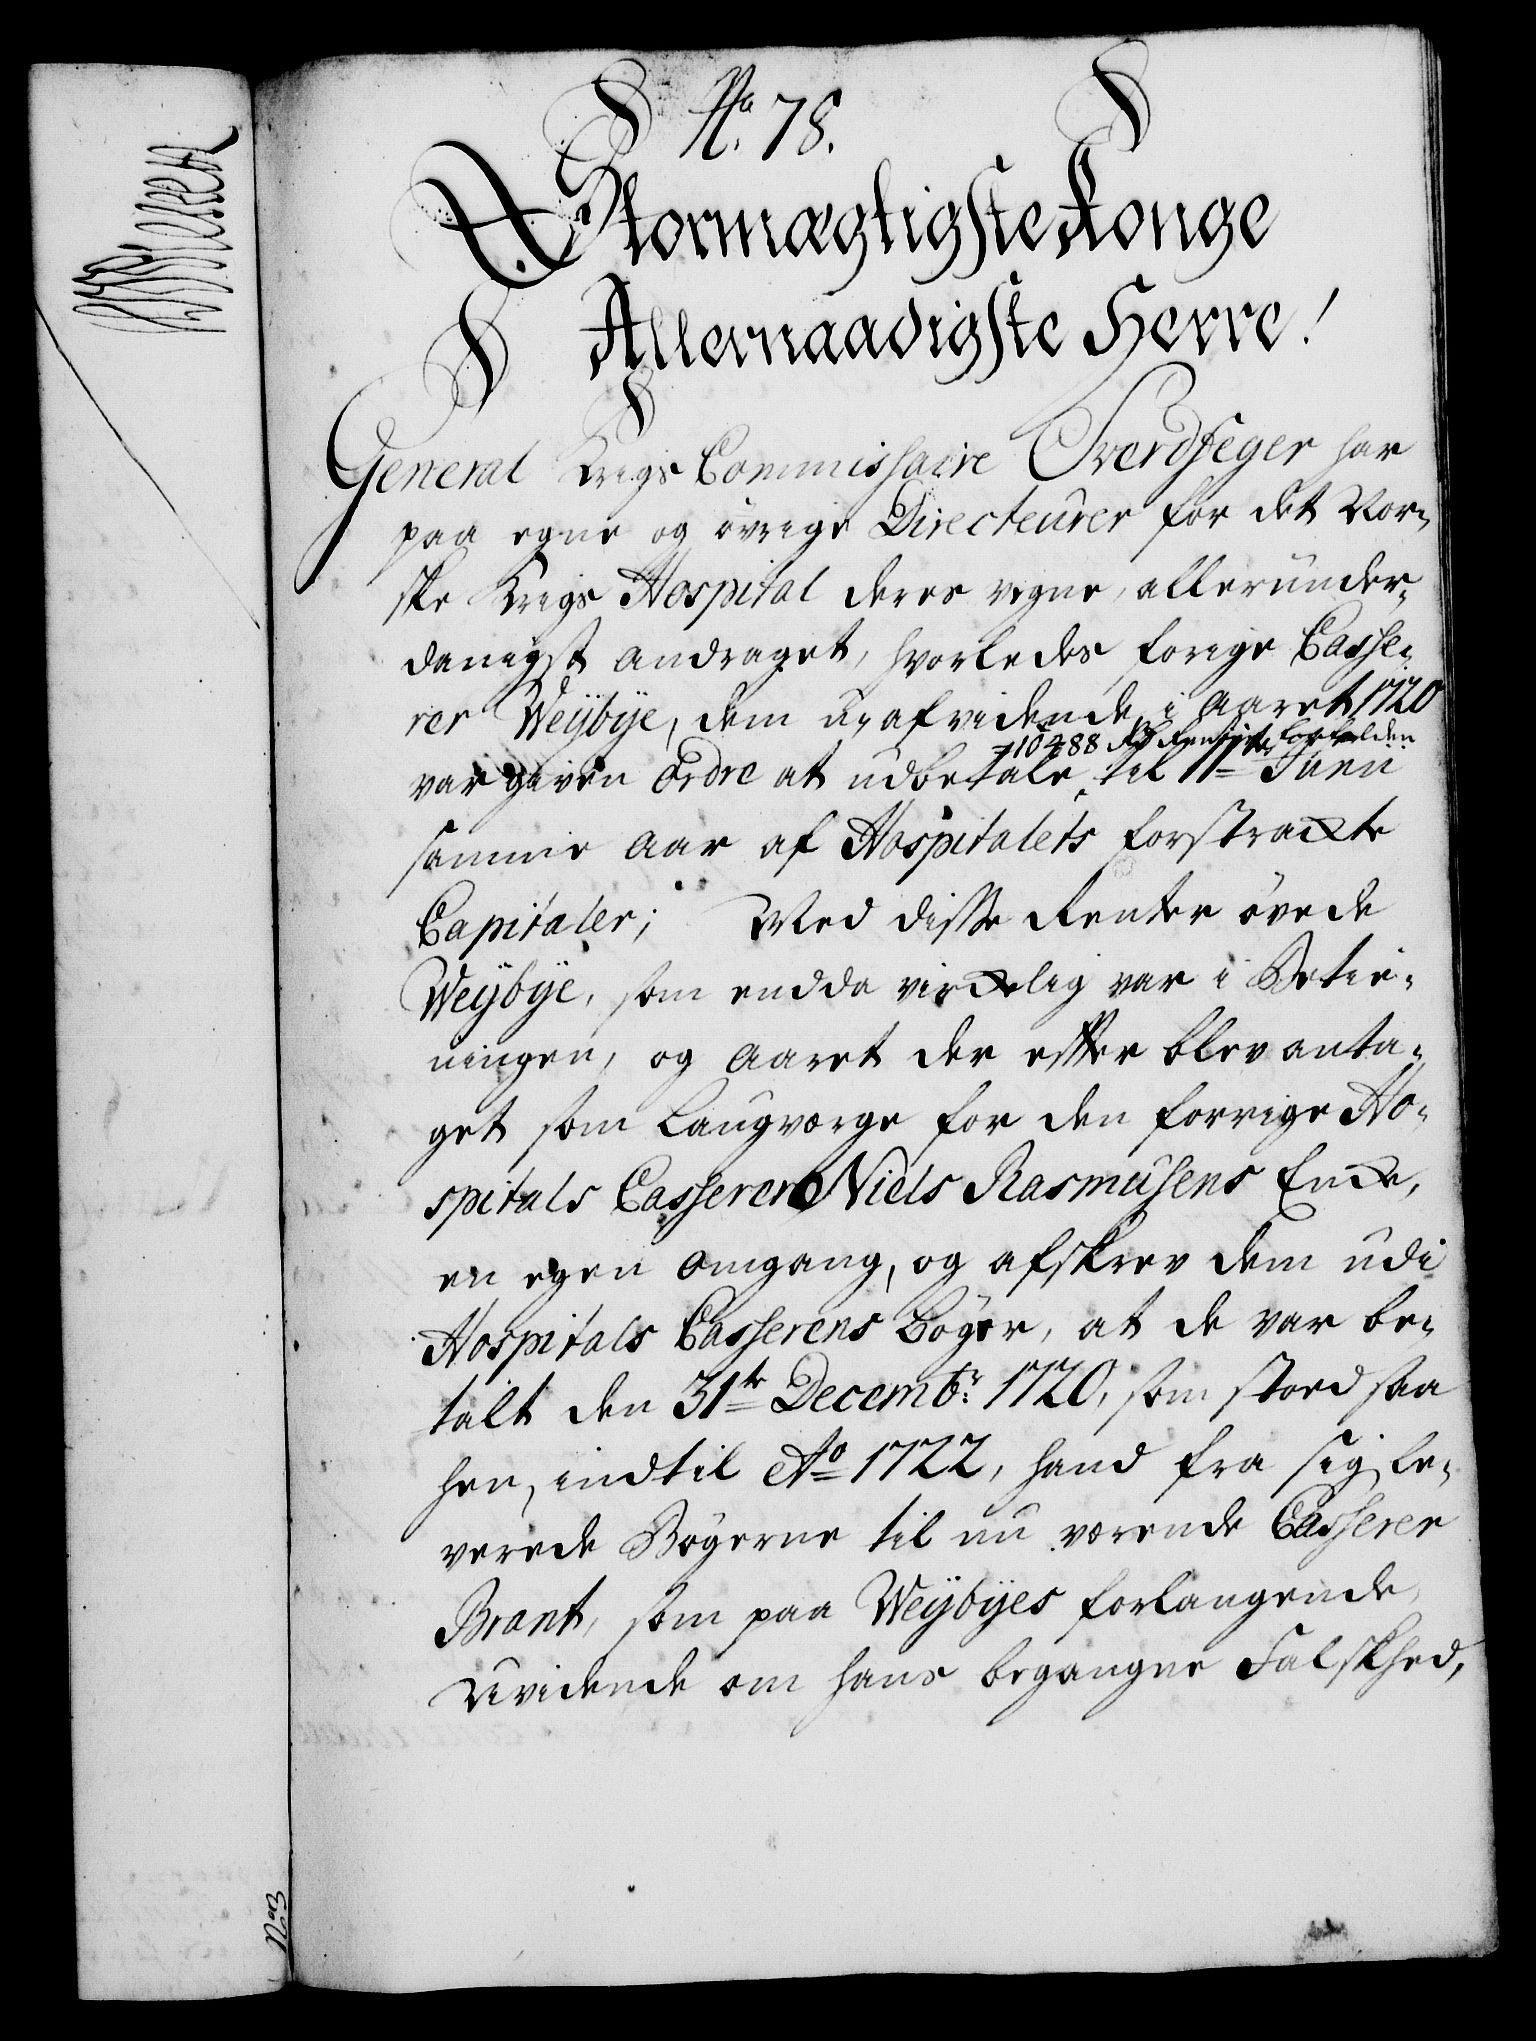 No. 78.
Stormægtigste Konge
Allernaadigste Herre!
General Krigs Commissaire Overdseger har
paa egne og övrige Directeurer for det Nor-
ske Krigs Hospital deres vegne, allerunder-
danigst andraget, hvorledes forige Casse-
rer Weybye, dem uafvidende, i Aaret 1720
10488 Rd Renter forfalden
var given Ordre at udbetale til 11te Junii
samme Aar af Hospitalets forstrackte
Capitaler; Med disse Renter övede
Weybye, som endda virckelig var i Betie-
ningen, og Aaret der effter blev anta-
get som Laugværge for den forrige Ho-
spitals Casserer Niels Rasmusens Encke,
en egen Omgang, og afskrev dem udi
Hospitals Casserens Böger, at de var be-
talt den 31te Decembr: 1720, som stoed saa
hen, indtil Ao 1722, hand fra sig le-
verede Bögerne til nu værende Casserer
Brant, som paa Weybyes forlangende,
Uvidende om hans begangne Falskhed,